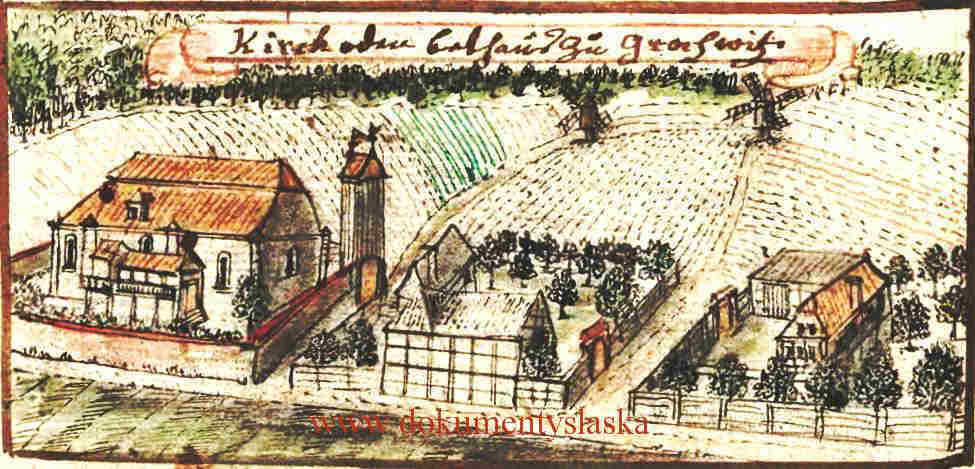 Kirch oder Bethaus zu Grochwitz
www.dokumentyslaska